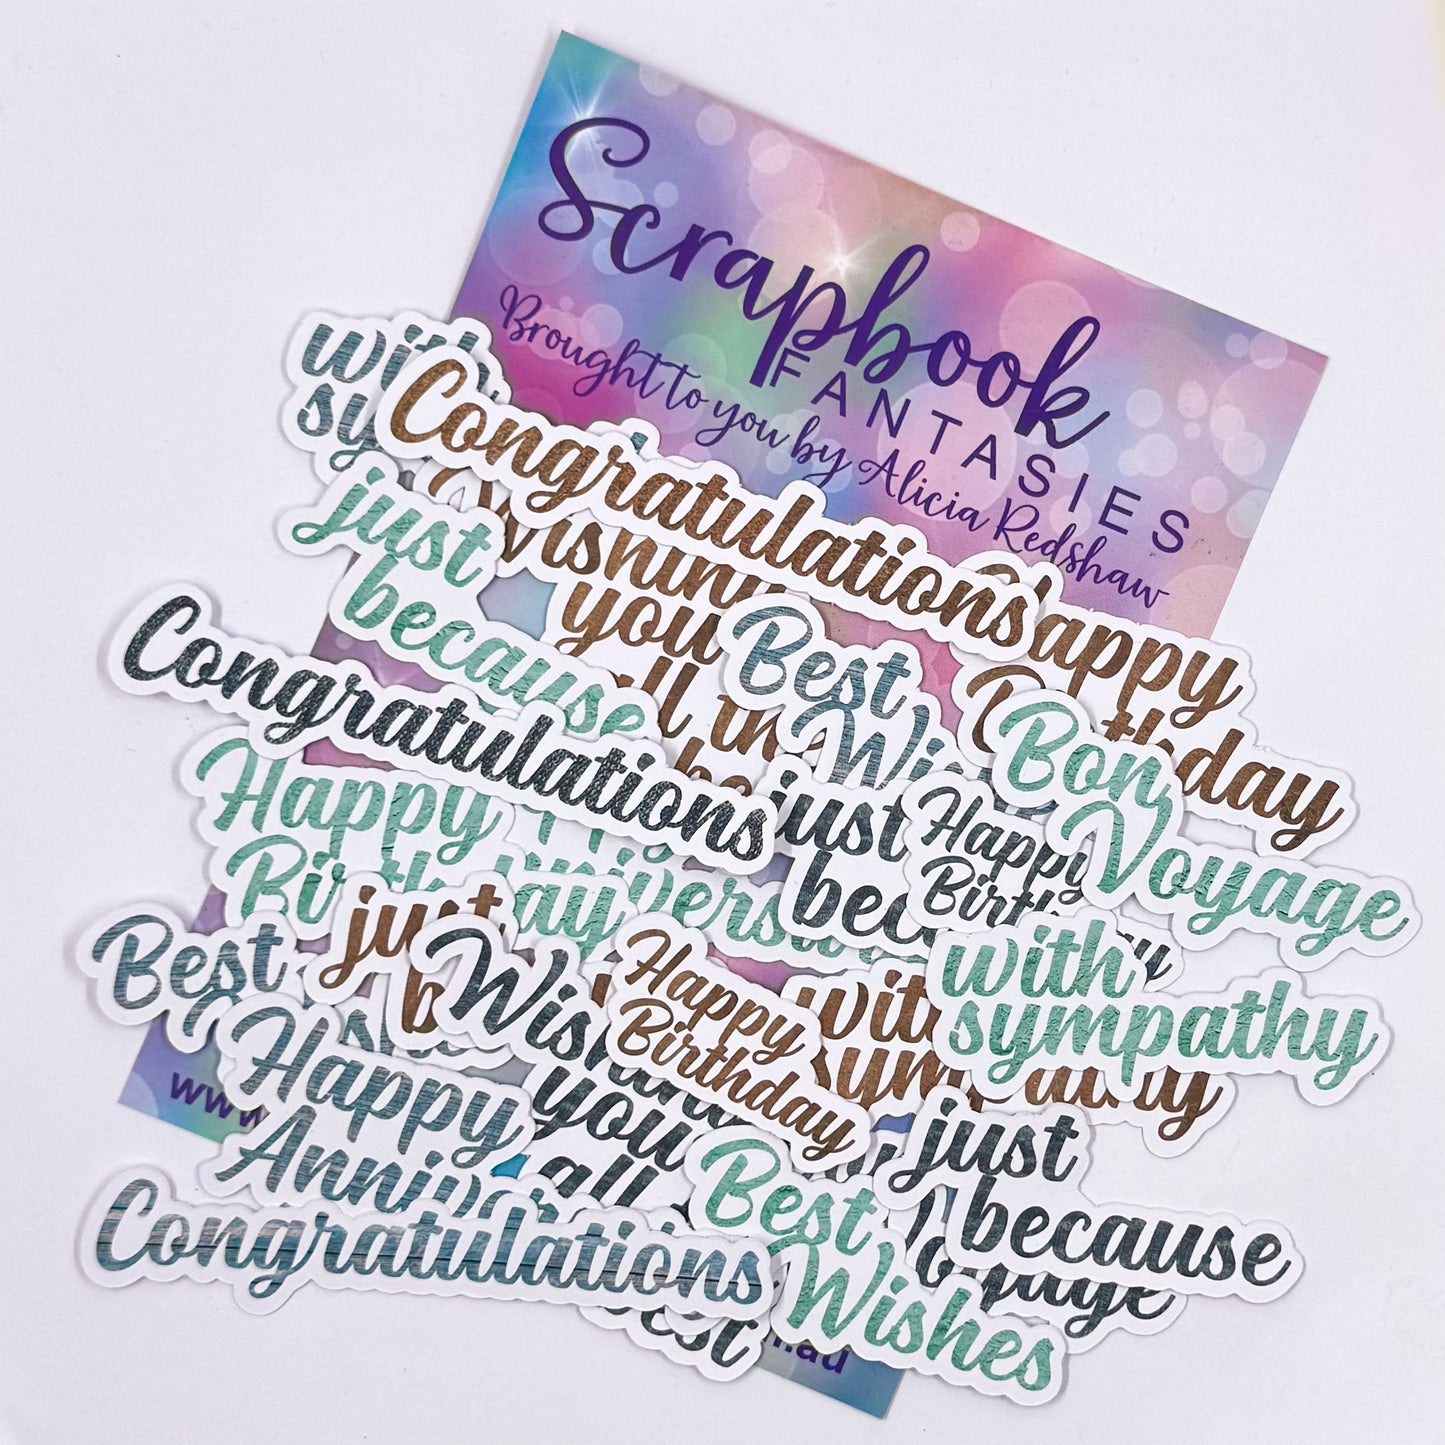 Scrapbook
FANTASIES
Brought to you by Alicia Redshaw
with
Congratulations
Wishing
you
just
because
Happy
Birthday
Best
Bon
Voyage
Congratulations
Happy
just
Happy
Birthday
with
sympathy
Best
just
Happy
Birthday
Happy
Congratulations
you
all
just
because
Best
Wishes
best